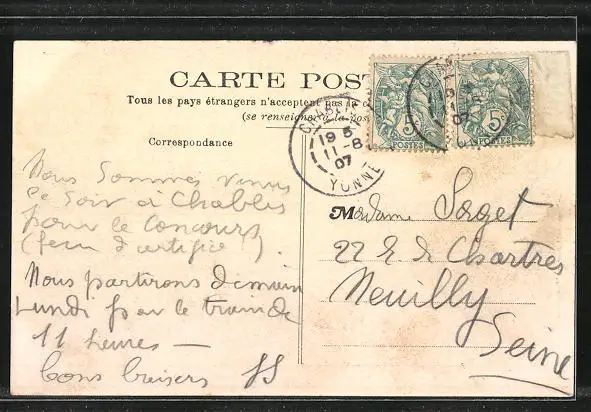 CARTE POST
Tous les pays étrangers n'acceptent pas la c
(se renseigner à la post
Correspondance
CHABLIS
19 5
11-8
07
YONNE
5
POSTES
5
POSTES
Nous sommes venus
ce soir à Chablis
pour le Concours
(feu d'artifice !).
Nous partirons demain
Lundi par le train de
11 heures —
bons baisers
Madame Sorget
22 R. de Chartres
Neuilly
Seine